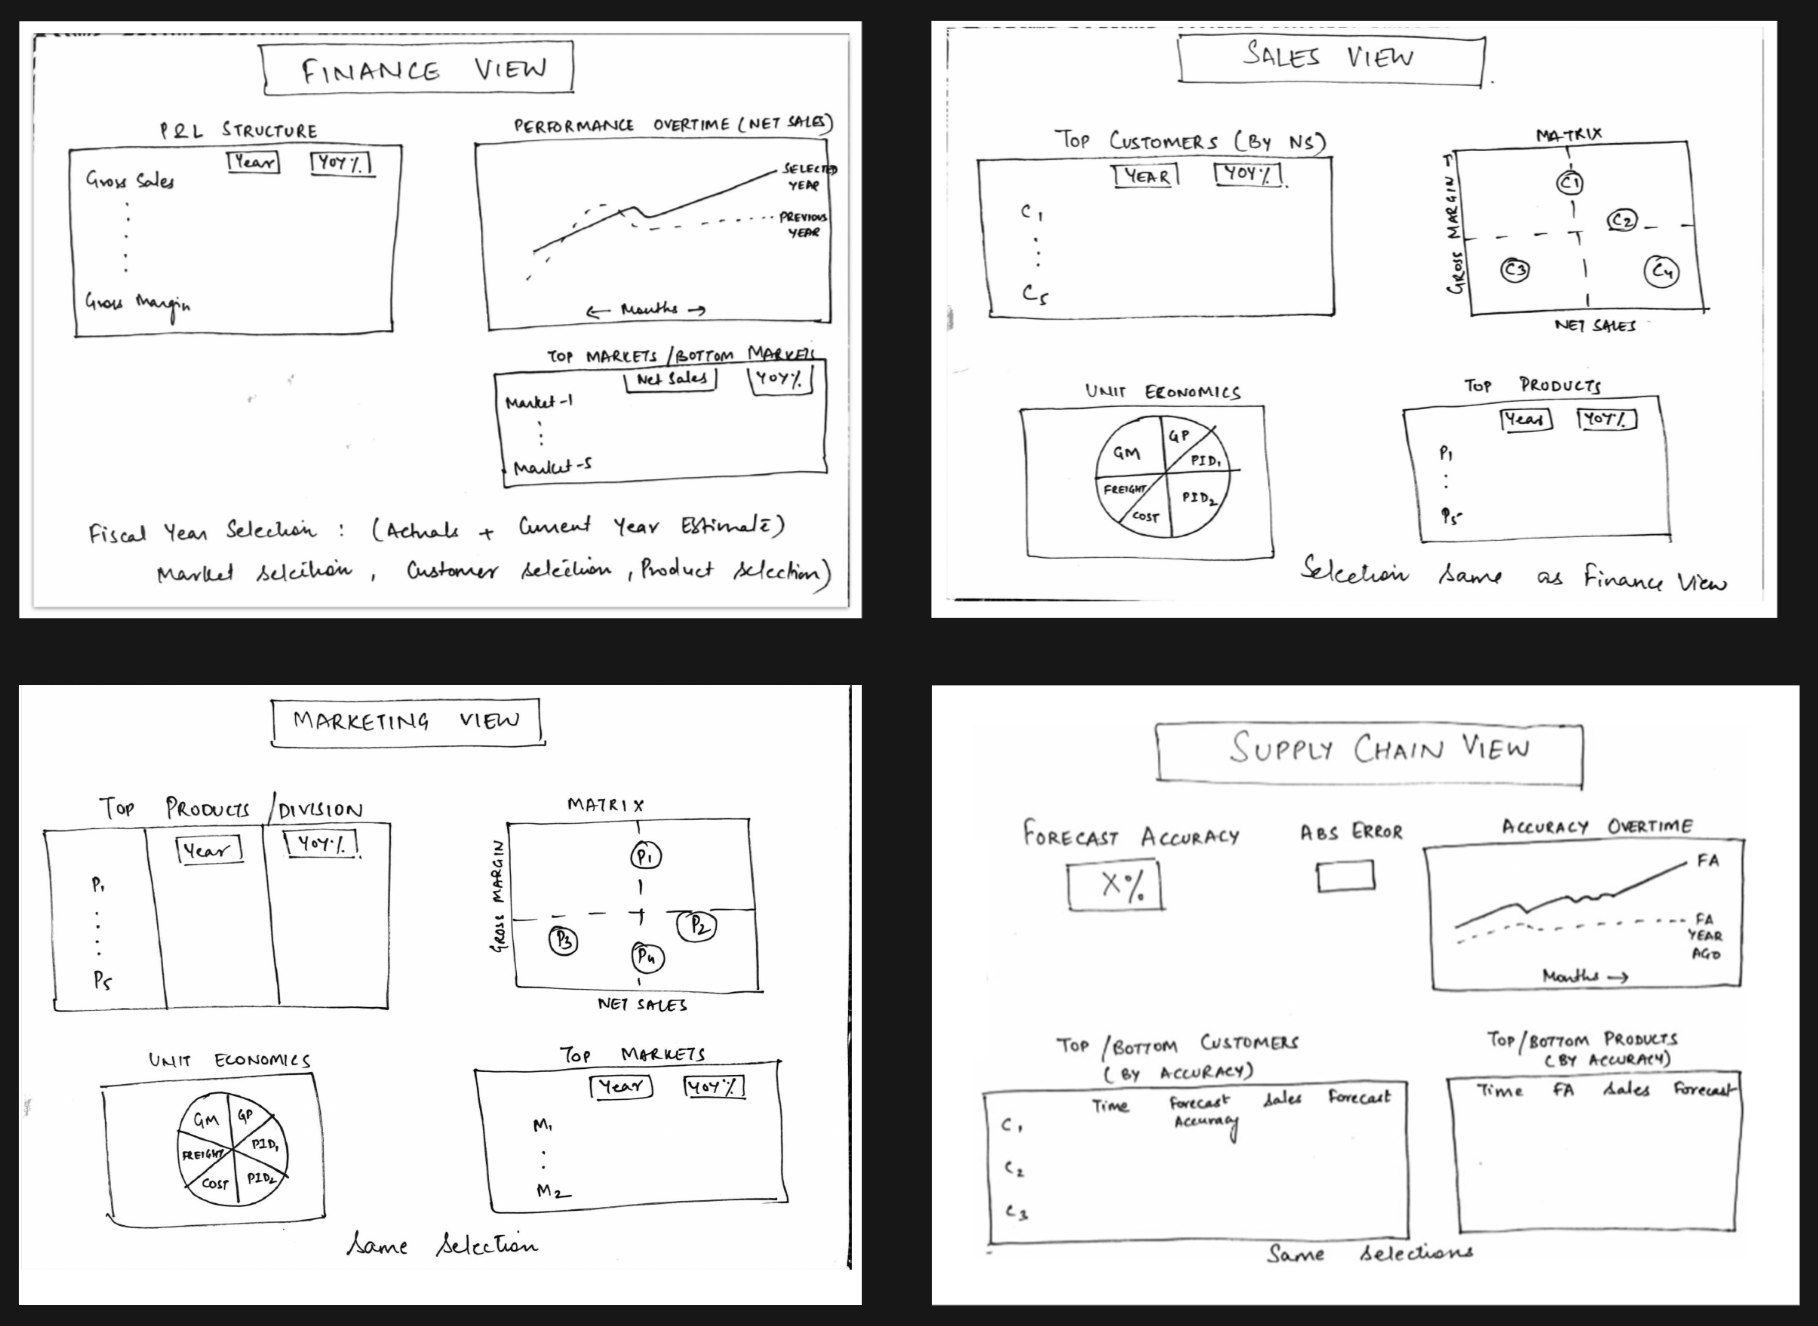 FINANCE VIEW
P&L STRUCTURE
Year YOY%
Gross Sales
Gross Margin
PERFORMANCE OVERTIME (NET SALES)
SELECTED
YEAR
PREVIOUS
YEAR
← Months →
TOP MARKETS / BOTTOM MARKETS
Net Sales YOY%
Market-1
Market-5
Fiscal Year Selection : (Actuals + Current Year Estimate)
Market selection, Customer selection, Product selection)
SALES VIEW
TOP CUSTOMERS (BY NS)
YEAR YOY%
C1
C5
MATRIX
GROSS MARGIN →
C1
C2
C3 C4
NET SALES
UNIT ECONOMICS
GM GP
PID1
FREIGHT PID2
COST
TOP PRODUCTS
Year YOY%
P1
P5
Selection same as Finance View
MARKETING VIEW
TOP PRODUCTS / DIVISION
Year YOY%
P1
P5
MATRIX
GROSS MARGIN
P1
P3 P2
P4
NET SALES
UNIT ECONOMICS
GM GP
FREIGHT PID1
COST PID2
TOP MARKETS
Year YOY%
M1
M2
Same Selection
SUPPLY CHAIN VIEW
FORECAST ACCURACY
X%
ABS ERROR
ACCURACY OVERTIME
FA
FA
YEAR
AGO
Months →
TOP / BOTTOM CUSTOMERS
(BY ACCURACY)
Time Forecast Accuracy Sales Forecast
C1
C2
C3
TOP/BOTTOM PRODUCTS
(BY ACCURACY)
Time FA Sales Forecast
Same selections